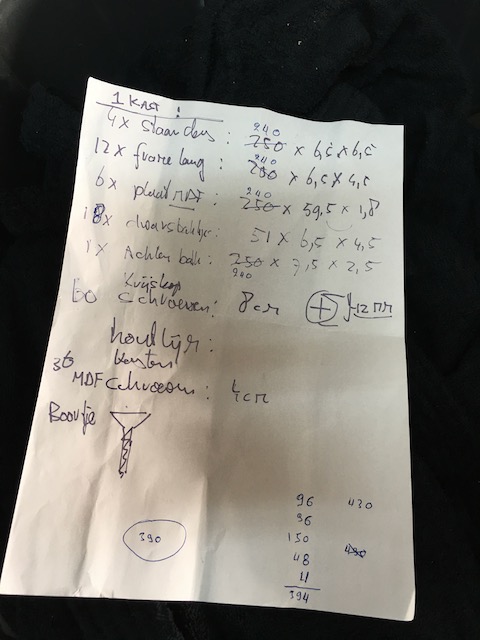 1 KAST :
4x Staanders : 240 250 x 6,5 x 6,5
12x frame lang : 240 x 6,5 x 4,5
6x plaat MDF : 240 250 x 59,5 x 1,8
18x dwarsbalkjes : 51 x 6,5 x 4,5
1x Achter balk : 250 x 7,5 x 2,5
240
Kruiskop
60 Schroeven : 8cm + 12
houtlijm :
36
MDF Schroeven : 4cm
Boortje
96 430
96
150
48
390
394